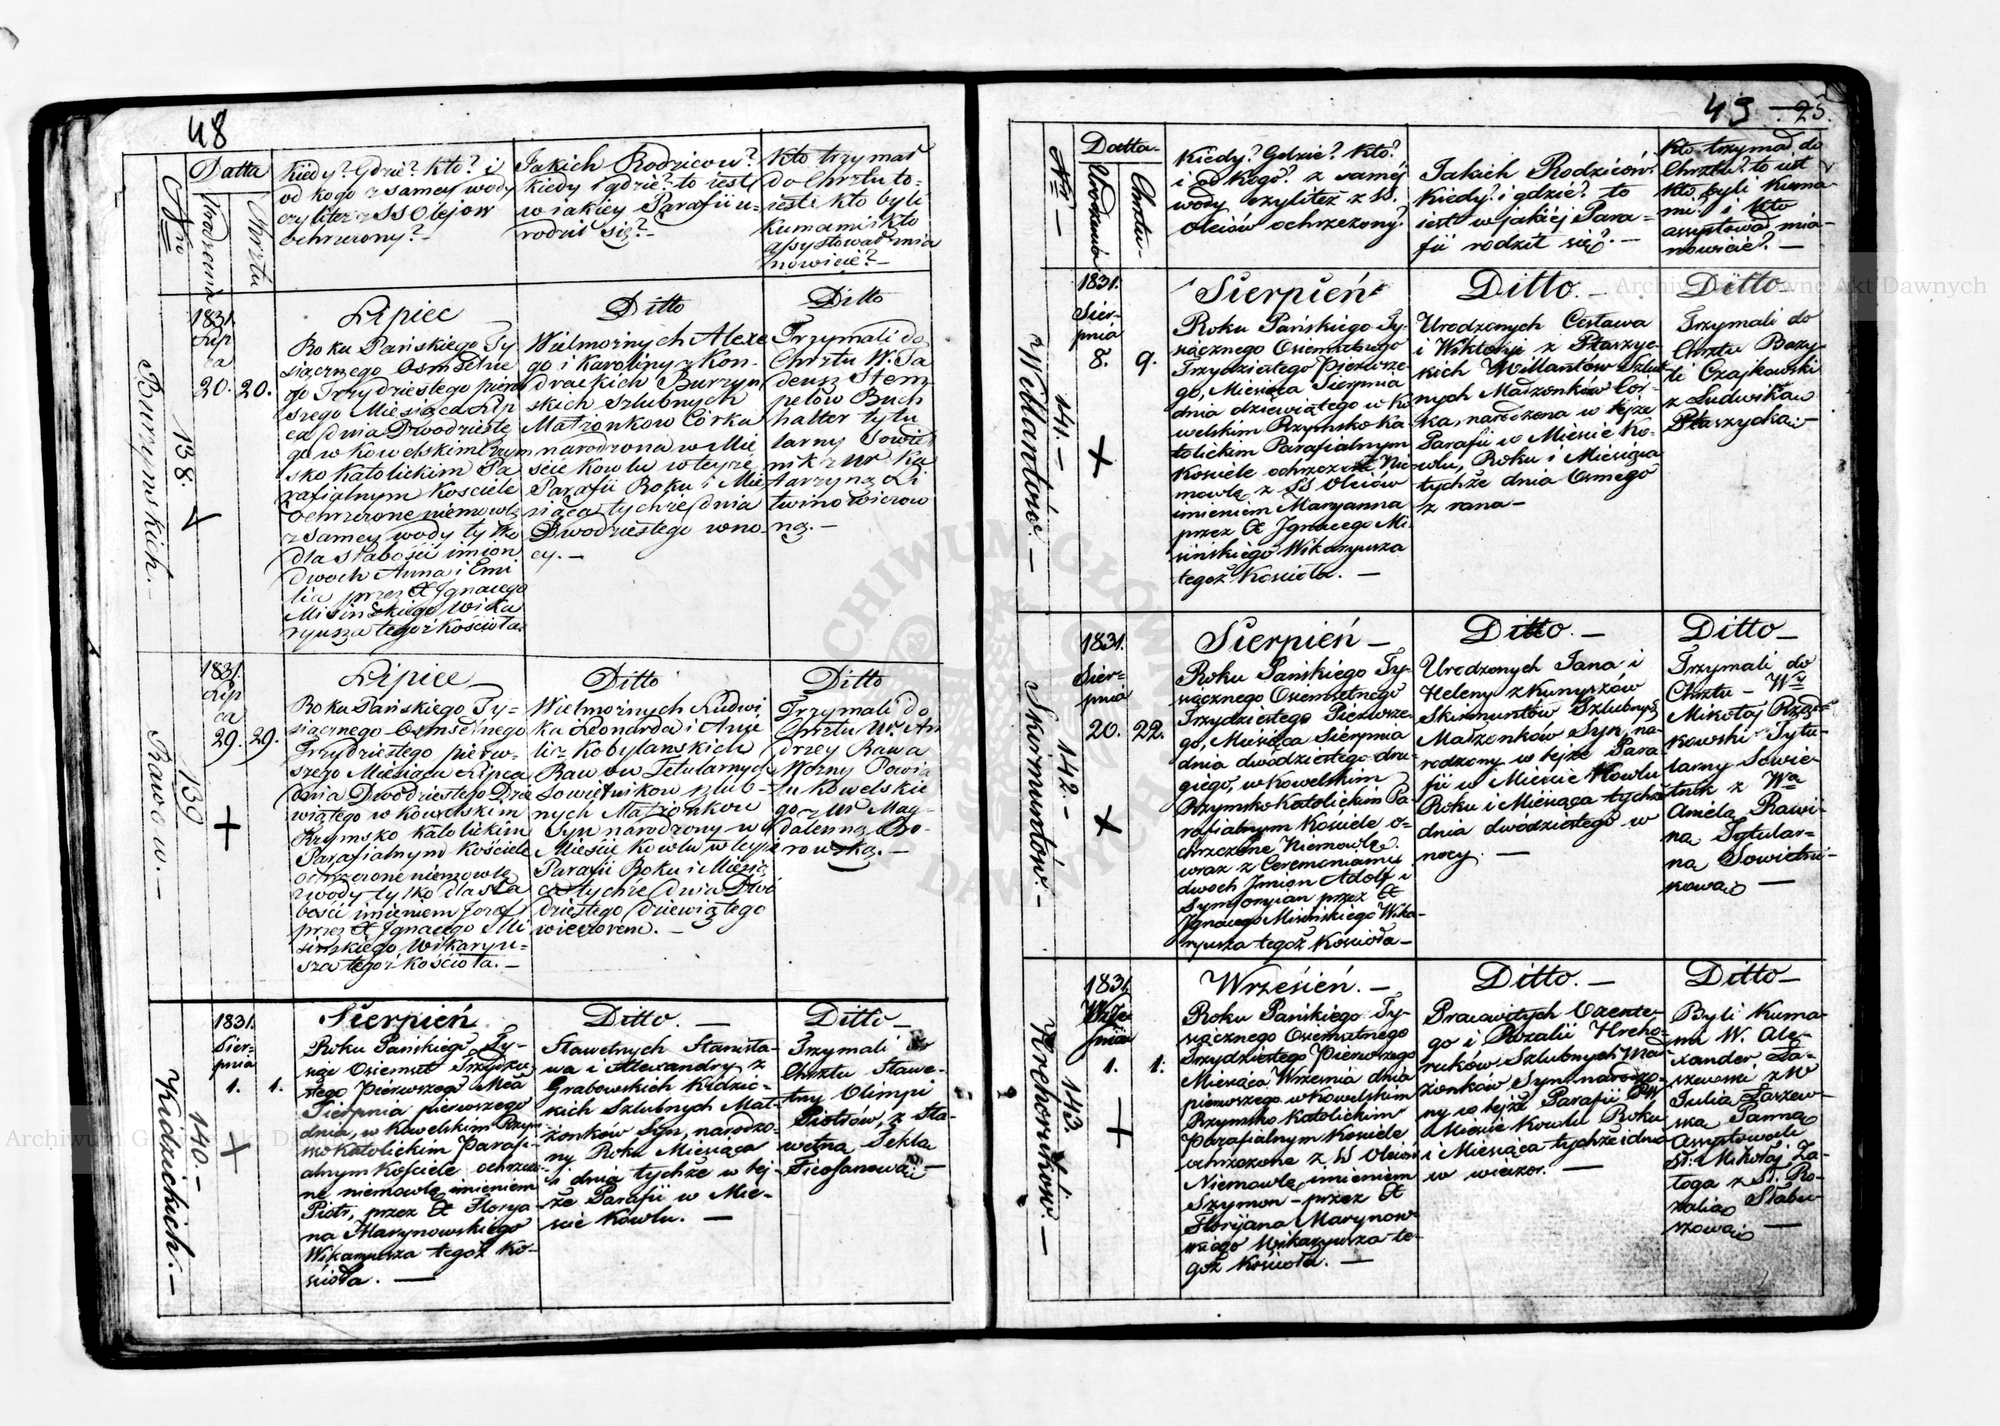 48
Nr
Datta
Urodzenia
Chrztu
Kiedy? Gdzie? kto? i
od kogo z samey wody
czyliteż z SS Olejow
ochrzczony? –
Jakich Rodzicow?
kiedy i gdzie? to jest
w jakiey Parafii u-
rodził się? –
Kto trzymał
do Chrztu to-
jest: kto byli
Kumami i kto
assystował mia
nowicie? –
Burzynskich. –
138.
1831.
Lip
ca
20. 20.
Lipiec
Roku Pańskiego Ty
siącznego Osmsetne
go Trzydziestego pierw
szego Miesiąca Lip
ca dnia Dwodzieste
go w Kowelskim Rzym
sko Katolickim Pa
rafialnym Kosciele
Ochrzczone niemowlę
z samey wody tylko
dla słabości imion
dwoch Anna i Emi
lia przez X Ignacego
Misinskiego Wika
ryusza tegoż Kościoła.
Ditto
Wielmożnych Alexe
go i Karoliny z Kon-
drackich Burzyn
skich szlubnych
Małżonkow Córka
narodzona w Mie
ście Kowlu w teyże
Parafii Roku i Mie
siąca tychże dnia
Dwodziestego w no-
cy. –
Ditto
Trzymali do
Chrztu W. Ta
deusz Stem
pelów Buch
halter tytu
larny Sowiet
nik z Wr Ka
tarzyną Li
twinowiczow
ną. –
Rawow. –
139
1831.
Lip
ca
29. 29.
Lipiec
Roku Pańskiego Ty-
siącznego Osmsetnego
Trzydziestego pierw-
szego Miesiąca Lipca
dnia Dwodziestego Dzie
wiątego w Kowelskim
Rzymsko Katolickim
Parafialnym Kościele
ochrzczone niemowlę
z wody tylko dla sła
bości imieniem Jozef
przez X Ignacego Mi
sinskiego Wikaryu=
sza tegoż Kościoła. –
Ditto
Wielmożnych Ludwi
ka Leonarda i Anie
li z Kobylanskich
Raw ow Tetularnych
Sowietnikow szlub-
nych Małżonkow
Syn narodzony w
Mieście Kowlu w teyże
Parafii Roku i Miesią
ca tychże dnia Dwó
dziestego dziewiątego
wieczorem. –
Ditto
Trzymali do
Chrztu Wr. An
drzey Rawa
Wozny Powia
tu Kowelskie
go z Wr Mag-
daleną Bo-
rowską. –
Kidzickich. –
140. –
1831.
Sier=
pnia
1. 1.
Sierpień
Roku Pańskiego Ty-
siąc Osiemset Trzydzie
stego Pierwszego Mca
Sierpnia pierwszego
dnia, w Kowelskim Rzym
sko Katolickim Parafi-
alnym Kościele ochrzczo-
ne niemowlę imieniem
Piotr, przez X Florya-
na Marynowskiego
Wikaryusza tegoż Ko-
ścioła. –
Ditto. –
Sławetnych Stanisła-
wa i Alexandry z
Grabowskich Kidzic-
kich Szlubnych Mał-
żonków Syn, narodzo-
ny Roku Miesiąca
i dnia tychże w tej
że Parafii w Mie-
scie Kowlu. –
Ditto –
Trzymali do
Chrztu Sławe-
tny Olimpi
Piotrów, z Sła-
wetną Teklą
Ficofanową –
49 – 25.
Nr –
Datta –
Urodzenia
Chrztu –
Kiedy? Gdzie? Kto?
i od Kogo? z saméj
wody czyliteż z SS.
Oleiów ochrzczony?
Jakich Rodziców?
Kiedy? i gdzie? to
jest w jakiéj Para-
fii rodził się? –
Kto trzymał do
Chrztu? to jest
kto byli Kuma
mi? i Kto
assystował mia-
nowicie? –
Willantów. –
141. –
1831.
Sier-
pnia
8. 9.
Sierpień
Roku Pańskiego Ty-
siącznego Osiemsetnego
Trzydziestego Pierwsze-
go, Miesiąca Sierpnia
dnia dziewiątego w Ko
welskim Rzymsko Ka
tolickim Parafialnym
Kościele ochrzczone Nie
mowlę z SS Oleiów
imieniem Maryanna
przez X Ignacego Mi-
sińskiego Wikaryusza
tegoż Kościoła. –
Ditto. –
Urodzonych Cesława
i Wiktoryi z Ptaszyc-
kich Willantów Szlub
nych Małżonków Cór-
ka, narodzona w tejże
Parafii w Mieście Ko-
wlu, Roku i Miesiąca
tychże dnia Osmego
z rana –
Ditto –
Trzymali do
Chrztu Bazy-
li Czajkowski
z Ludwiką
Ptaszycką –
Skormuntów. –
142. –
1831.
Sier=
pnia
20. 22.
Sierpień –
Roku Pańskiego Ty-
siącznego Osiemsetnego
Trzydziestego Pierwsze-
go, Miesiąca Sierpnia
dnia dwódziestego dru-
giego, w Kowelskim
Rzymsko Katolickim Pa
rafialnym Kościele o-
chrzczone Niemowlę
wraz z Ceremoniamy
dwoch Imion Adolf i
Symforyian przez X
Ignacego Misińskiego Wika-
ryusza tegoż Kościoła –
Ditto. –
Urodzonych Jana i
Heleny z Kunyszów
Skirmuntów Szlubnych
Małżonków Syn, na-
rodzony w tejże Para
fii w Mieście Kowlu
Roku i Miesiąca tychże
dnia dwódziestego w
nocy. –
Ditto –
Trzymali do
Chrztu – Wny
Mikołaj Rząd=
kowski Tytu-
larny Sowie-
tnik z Wną
Anielą Rawi-
ną Tytular-
ną Sowietni-
kową –
Hrehoruków. –
143.
1831.
Wrze
śnia
1. 1.
Wrzesień. –
Roku Pańskiego Ty-
siącznego Osiemsetnego
Trzydziestego Pierwszego
Miesiąca Września dnia
pierwszego w Kowelskim
Rzymsko Katolickim
Parafialnym Kościele
ochrzczone z SS Oleiów
Niemowlę imieniem
Szymon – przez X
Floryana Marynow
skiego Wikaryusza te-
goż Kościoła. –
Ditto. –
Pracowitych Oxente-
go i Rozalii Hreho-
ruków Szlubnych Mał-
żonków Syn narodzo-
ny w tejże Parafii w
Mieście Kowlu Roku
i Miesiąca tychże i dnia
w wieczor. –
Ditto –
Byli Kuma-
mi W. Ale-
xander Ła-
szewski z W
Julią Łaszew-
ską Panną
Assystowali
St. Mikołaj Za-
łoga z St. Ro-
zalią Słabu-
szową –
Archiwum Główne Akt Dawnych
Archiwum Główne Akt Dawnych
ARCHIWUM GŁÓWNE AKT DAWNYCH